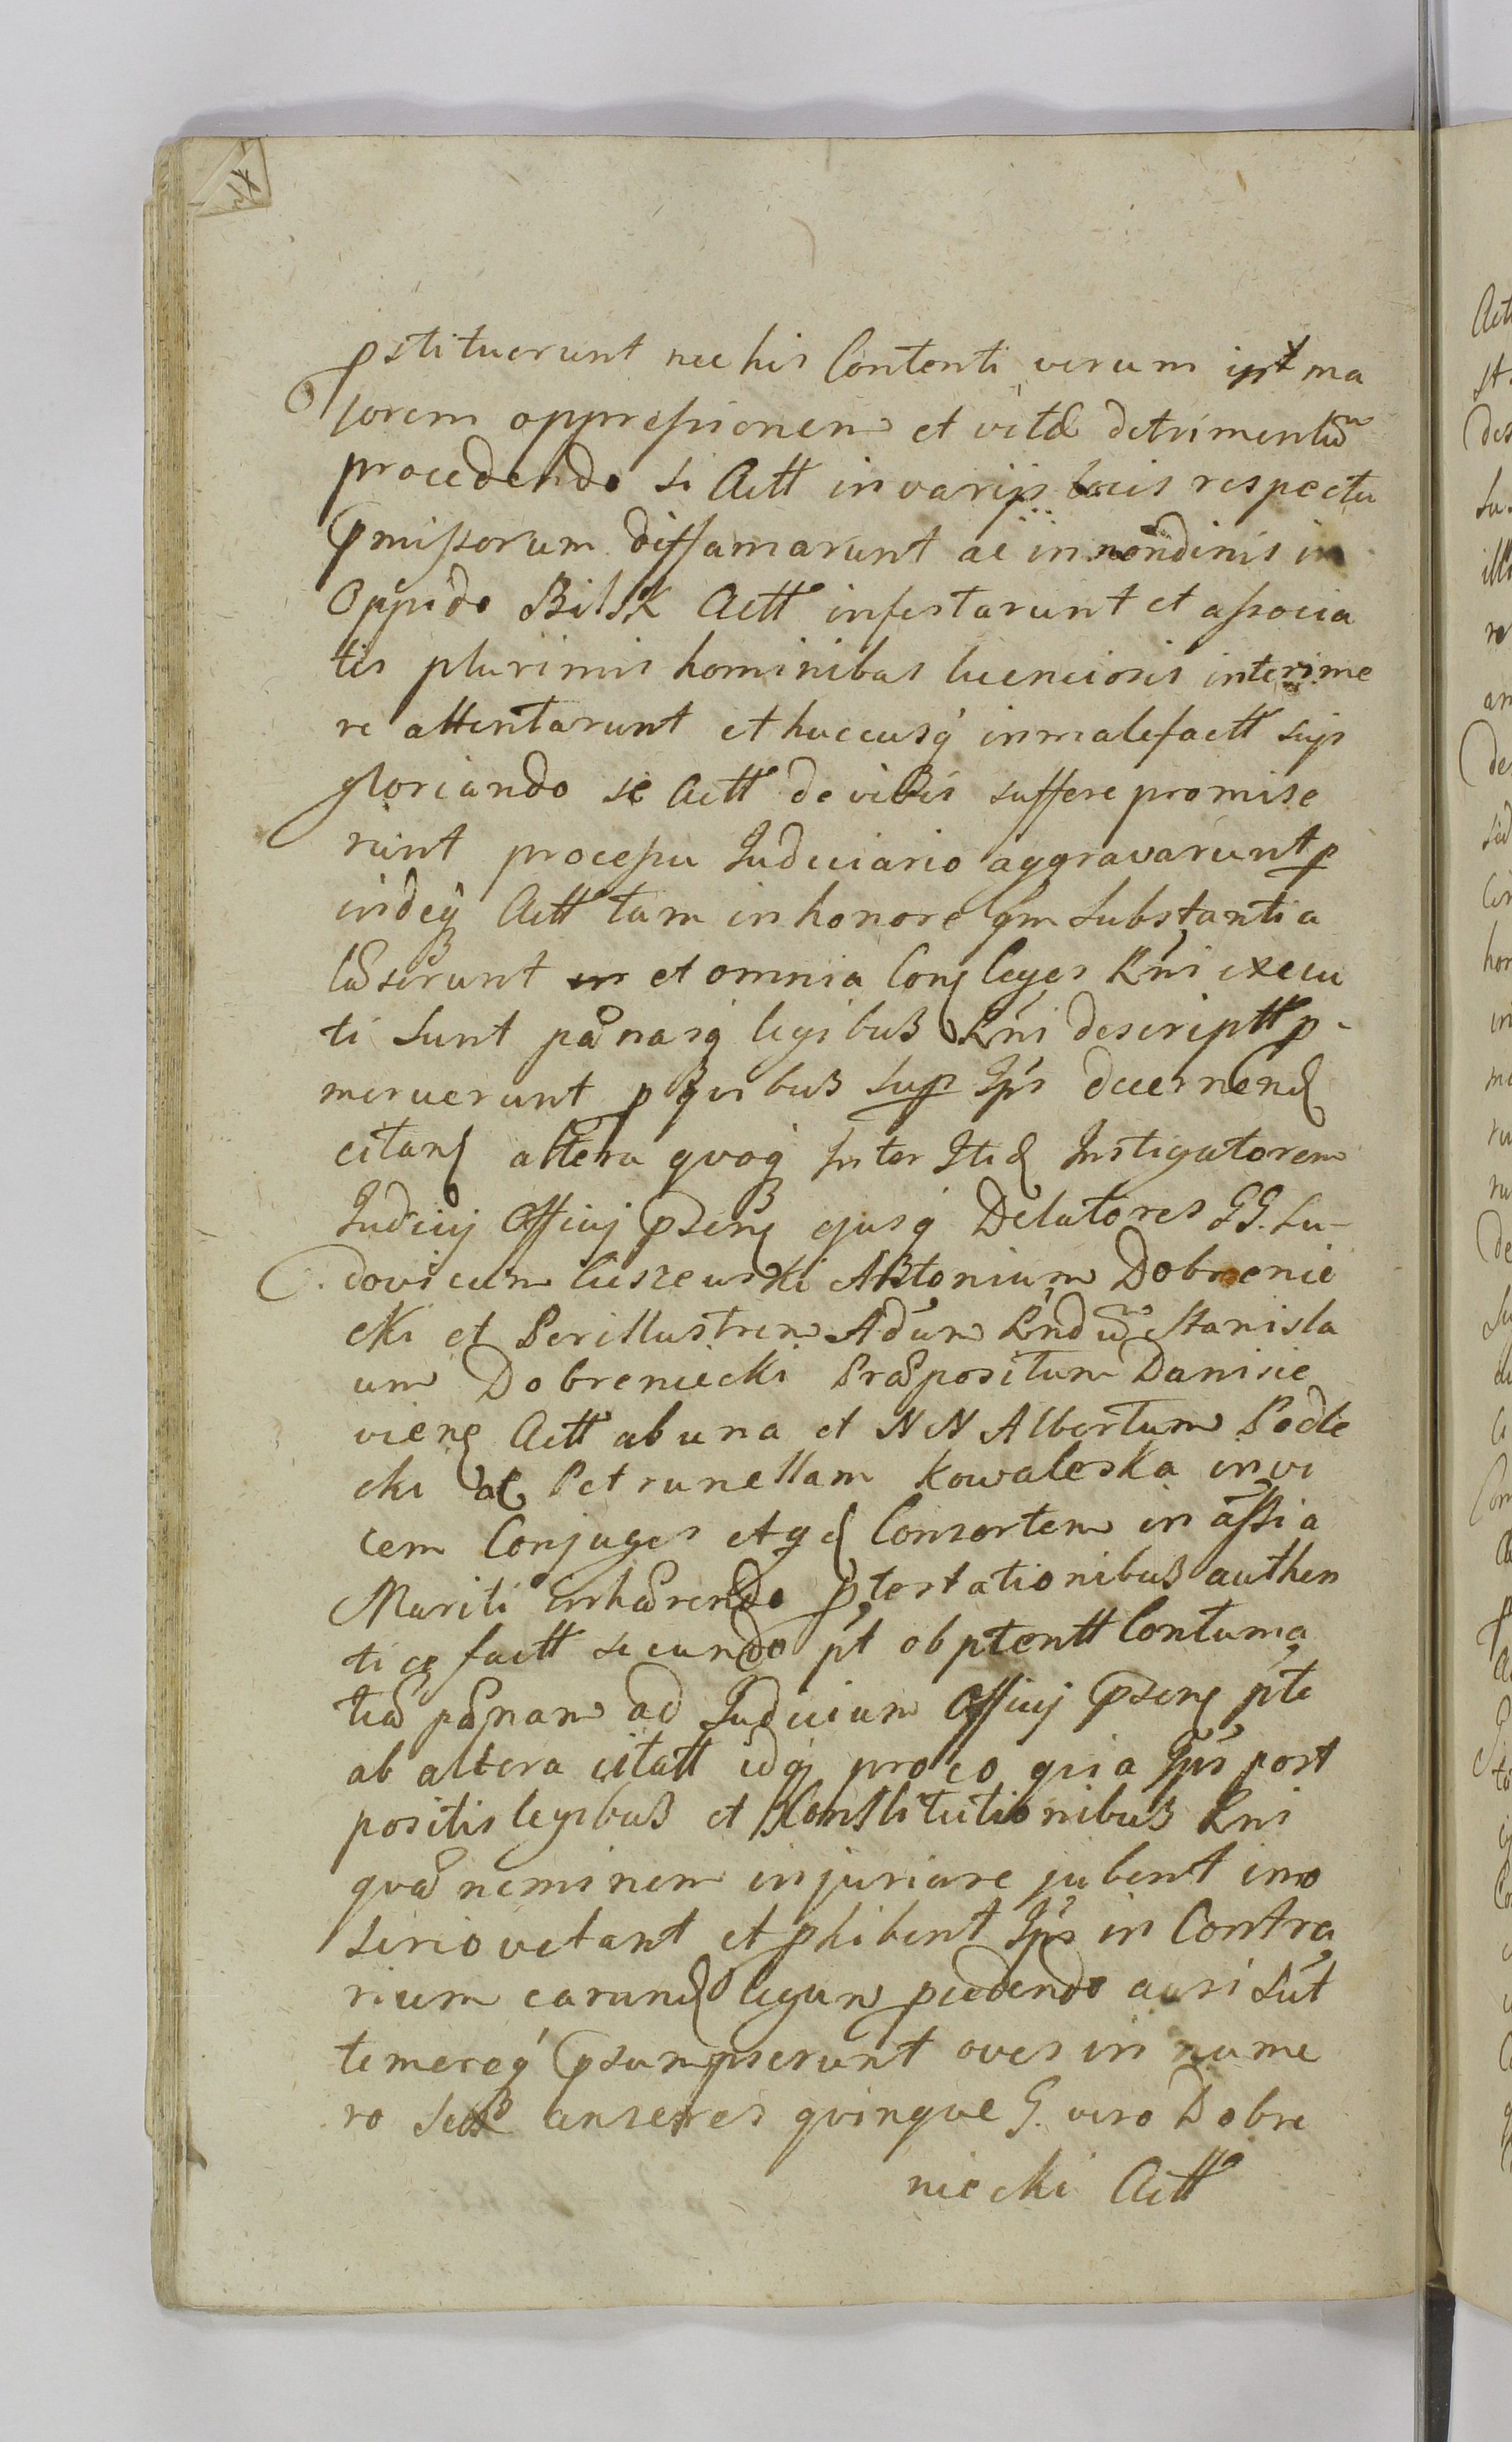 pstituerunt nec his Contenti verum in ma
jorem oppressionem et vitæ detrimentũ
procedendo si Actt in varijs locis respectu
pmissorum diffamarunt ac in nondinis in
Oppido Bilsk Actt infestarunt et associa
tis plurimis hominibus licenciosis interime
re attentarunt et huccusq̃ in malefactt suis
gloriando se Actt de vibis suffere promise
runt processu Judiciario aggravarunt p
indeq̃ Actt tam in honore qm Substantia
læserunt et omnia Con Leges Rni execu
ti sunt pænasq̃ legibus Rni descriptt p-
meruerunt p quibus sup Ips decernen
citan altera quoq̃ Inter Itid Instigatorem
Judicij Officij psen ejusq̃ Delatores GG. Lu-
dovicum Cieszewski Antonium Dobrenie
cki et Perillustrem Adũm Rndũ Stanisla
um Dobreniecki Præpositum Danisie
vien Actt ab una et NN Albertum Podle
cki ac Petrunellam Kowaleska invi
cem Conjuges et Consortem in assia
Mariti inhærendo ptestationibus authen
tice factt secundo pt obptentt Contuma
tiæ pænam ad Judicium Officij psen pte
ab altera citatt idq̃ pro eo quia Ips post
positis legibus et Constitutionibus Rni
quæ neminem injuriare jubent imo
serio vetant et phibent Ips in Contra
rium earund legum pcedendo ausi sũt
temereq̃ psumpserunt oves in nume
ro anseres quinque G. vero Dobre
niecki Actt